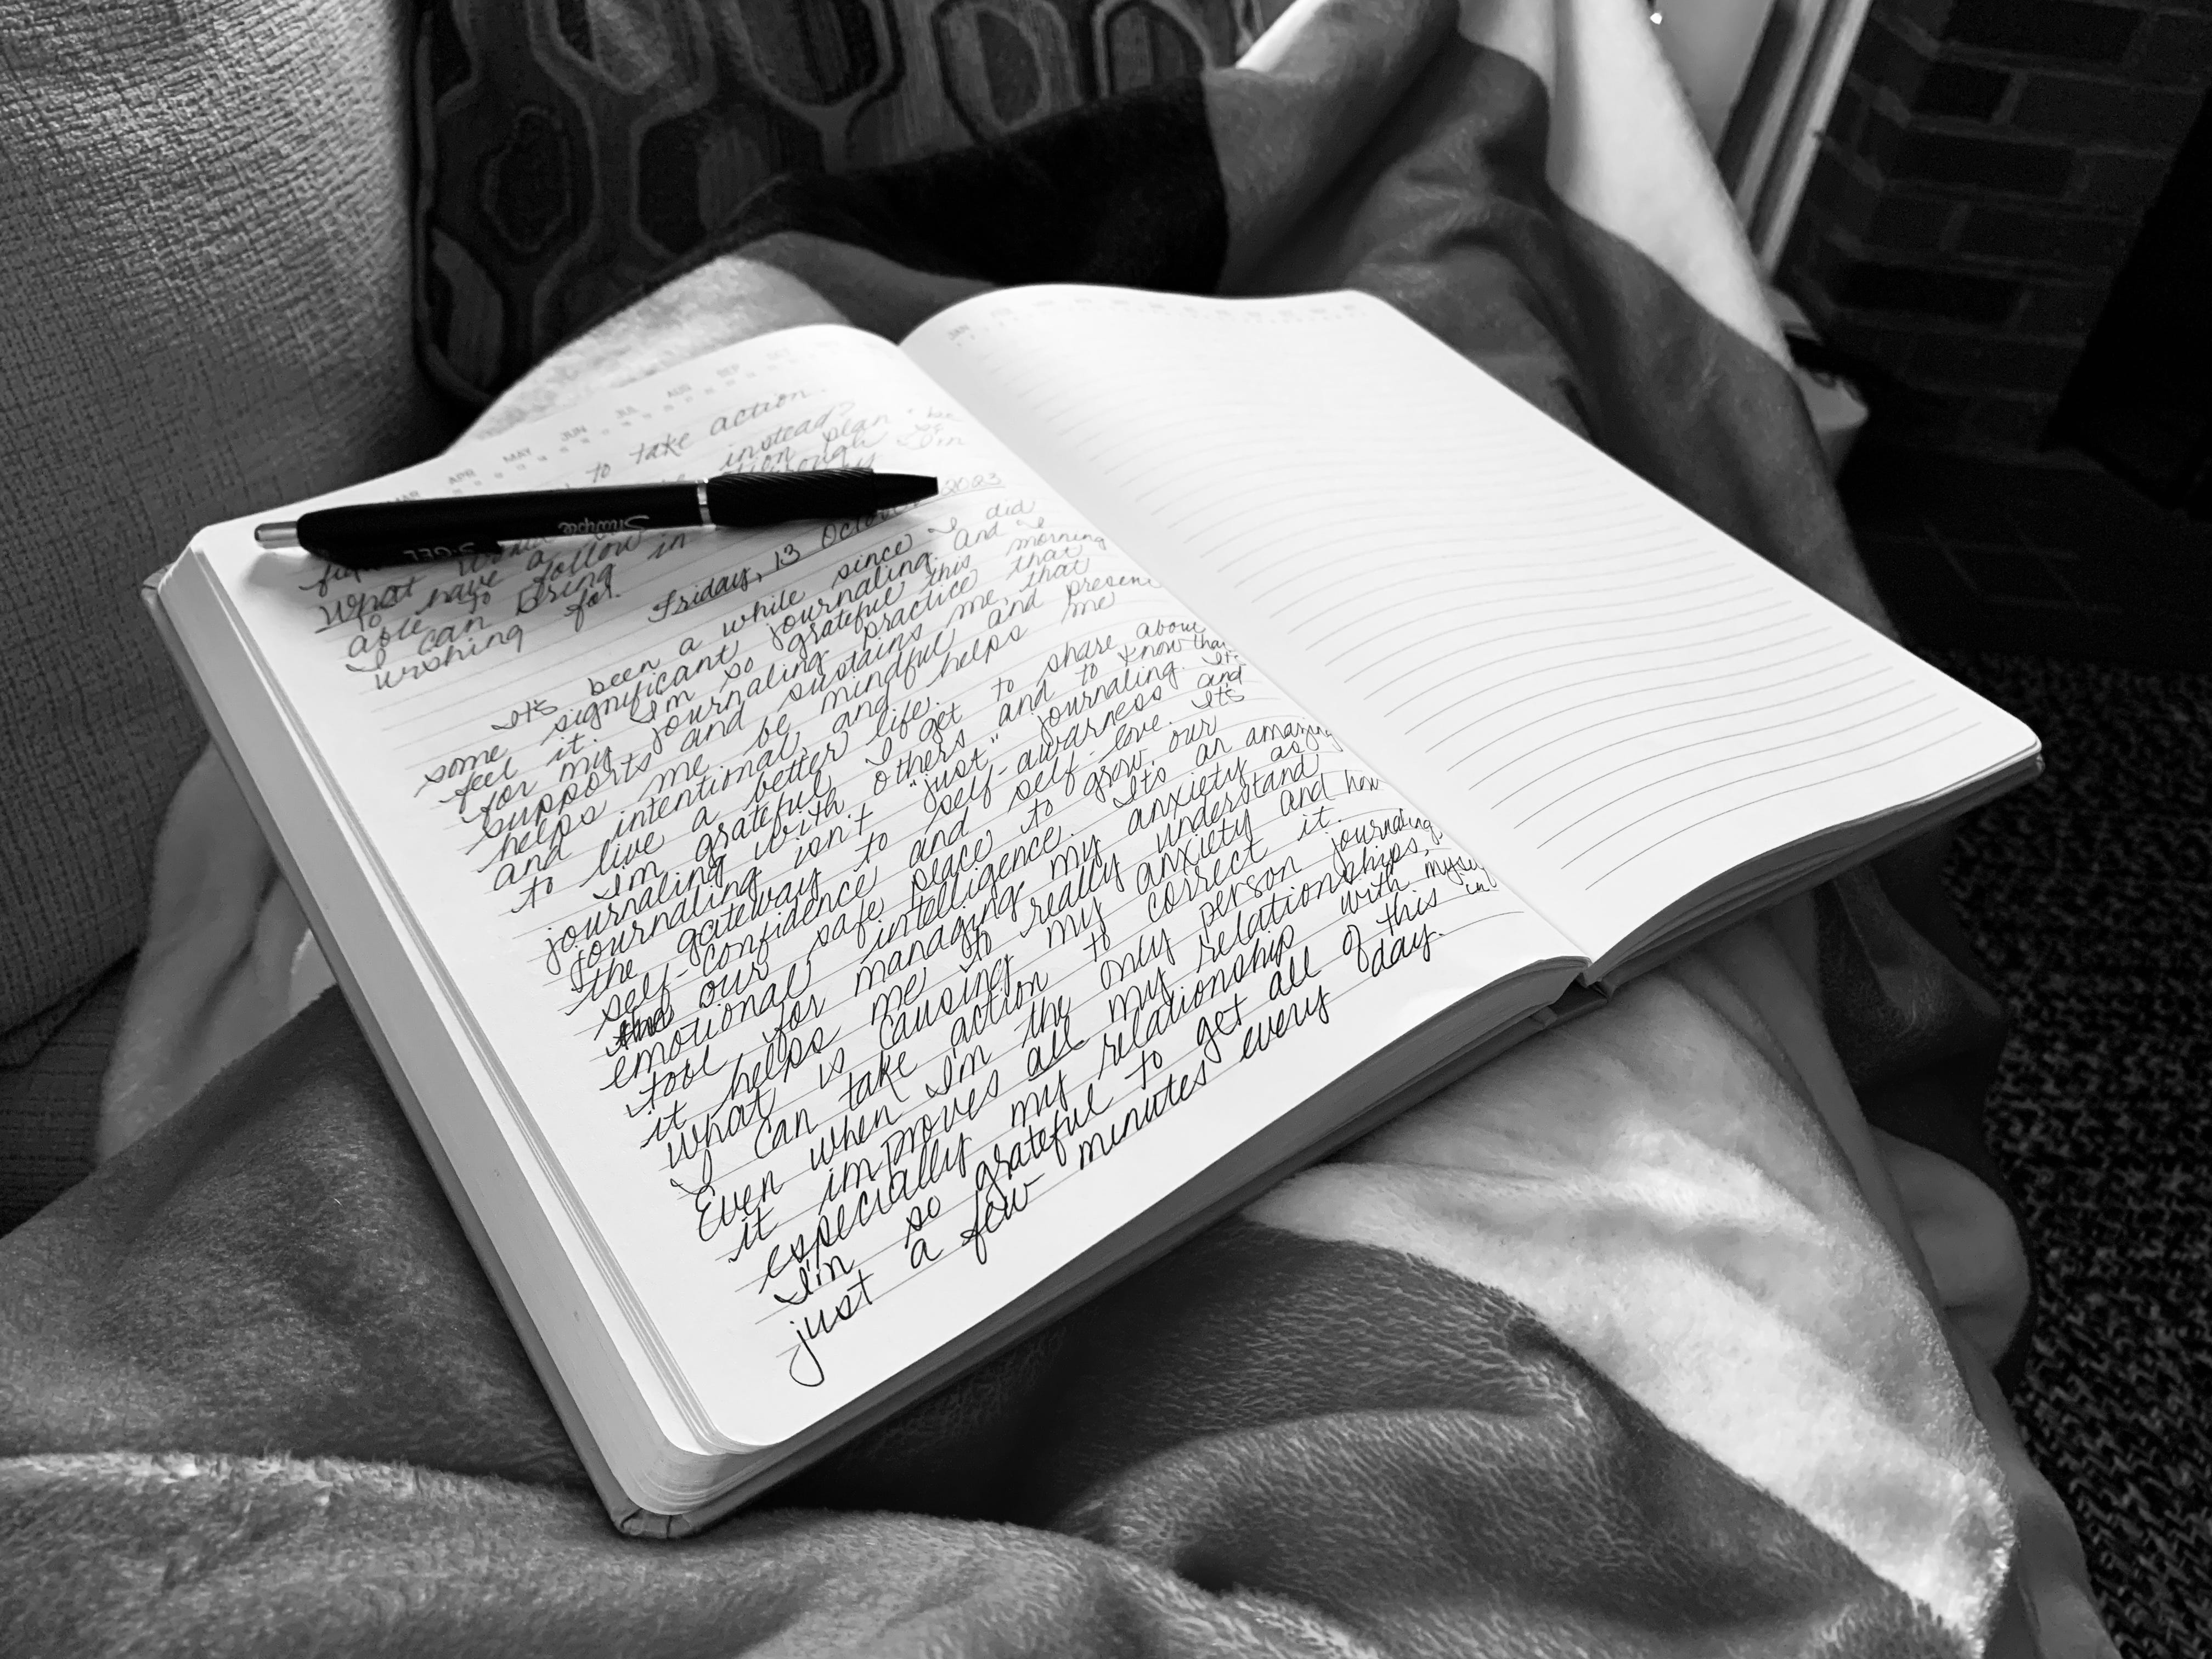 MAR APR MAY JUN JUL AUG SEP
to take action.
instead?
plan
What
to have a
able to follow
I can bring in
wishing for.
Sharpie
S·GEL
Friday, 13 October 2023
It's been a while since I did
some significant journaling. And I
feel it. I'm so grateful this morning
for my journaling practice that
supports and sustains me, that
helps me be mindful and present
and intentional, and helps me
to live a better life.
I'm grateful I get to share about
journaling with others and to know that
journaling isn't "just" journaling. It's
the gateway to self-awarness and
self-confidence and self-love. It's
our safe place to grow our
emotional intelligence. It's an amazing
tool for managing my anxiety as
it helps me to really understand
what is causing my anxiety and how
I can take action to correct it.
Even when I'm the only person journaling,
it improves all my relationships,
especially my relationship with myself
I'm so grateful to get all of this in
just a few minutes every day.
JAN